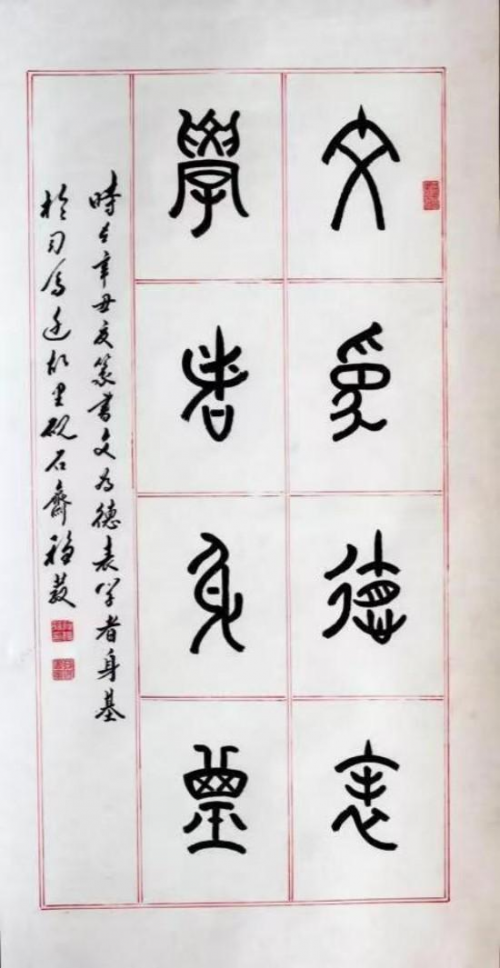 文為德表
學者身基
時在辛丑夏篆書文为德表学者身基
於司馬迁故里砚石齋